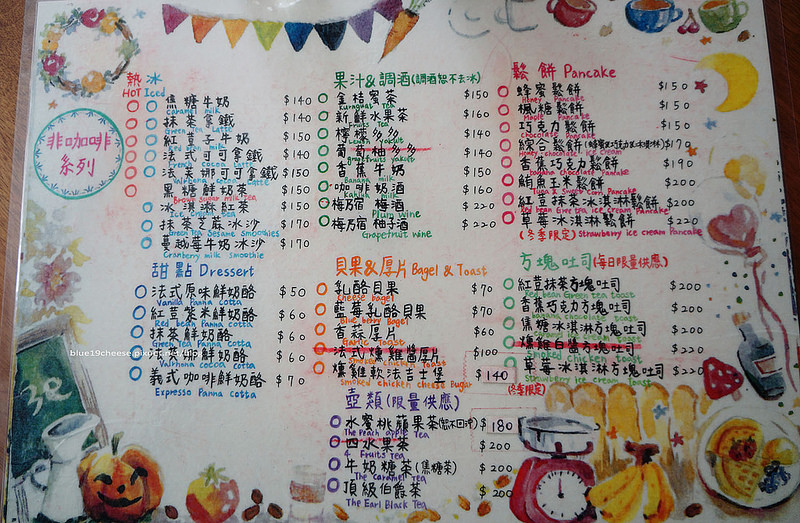 非咖啡
系列
熱 冰
HOT Iced
焦糖牛奶 $140
Caramel milk
抹茶拿鐵 $140
Green Tea Latte
紅豆子牛奶 $150
Red bean milk
法式可可拿鐵 $140
French cocoa Latte
法芙娜可可拿鐵 $150
Valrhona cocoa Latte
黑糖鮮奶茶 $150
Brown sugar milk tea
冰淇淋紅茶 $150
Ice cream tea
抹茶芝麻冰沙 $170
Green Tea Sesame Smoothies
蔓越莓牛奶冰沙 $170
Cranberry milk Smoothie
甜點 Dressert
法式原味鮮奶酪 $50
Vanilla Panna cotta
紅豆紫米鮮奶酪 $60
Red bean Panna cotta
抹茶鮮奶酪 $60
Green Tea Panna cotta
鮮奶酪 $60
Valrhona cocoa cotta
義式咖啡鮮奶酪 $70
Expresso Panna cotta
果汁&調酒(調酒恕不去冰)
金桔蜜茶 $150
Kumquat Tea
新鮮水果茶 $160
Fruits Tea
檸檬多多 $140
Lemon yakult
葡萄柚多多 $140
Grapefruit yakult
香蕉牛奶 $150
Banana milk
咖啡奶酒 $160
Kahlua milk
梅乃宿 梅酒 $220
Plum wine
梅乃宿 柚子酒 $220
Grapefruit wine
貝果&厚片 Bagel & Toast
乳酪貝果 $70
Cheese bagel
藍莓乳酪貝果 $70
Blue berry Bagel
香蒜厚片 $60
Garlic Toast
法式燻雞醬厚片 $100
Smoked chicken Toast
燻雞軟法吉士堡 $140
Smoked chicken cheese Bugar
壺類(限量供應)
水蜜桃蘋果茶(恕不回沖) $180
The Peach apple Tea
四水果茶 $200
4 Fruits Tea
牛奶糖茶(焦糖茶) $200
The Caramel Tea
頂級伯爵茶 $200
The Earl Black Tea
鬆餅 Pancake
蜂蜜鬆餅 $150
Honey Pancake
楓糖鬆餅 $150
Maple Pancake
巧克力鬆餅 $150
Chocolate Pancake
綜合鬆餅 $170
Honey chocolate Ice cream
香蕉巧克力鬆餅 $190
Banana chocolate Pancake
鮪魚玉米鬆餅 $200
Tuna & sweet corn Pancake
紅豆抹茶冰淇淋鬆餅 $200
Red bean Gree tea ice cream Pancake
草莓冰淇淋鬆餅 $220
(冬季限定) Strawberry ice cream Pancake
方塊吐司(每日限量供應)
紅豆抹茶方塊吐司 $200
Red bean Green tea toast
香蕉巧克力方塊吐司 $200
Banana chocolate Toast
焦糖冰淇淋方塊吐司 $200
Caramel ice cream Toast
燻雞白醬方塊吐司 $220
Smoked chicken Toast
草莓冰淇淋方塊吐司 $220
(冬季限定) Strawberry ice cream Toast